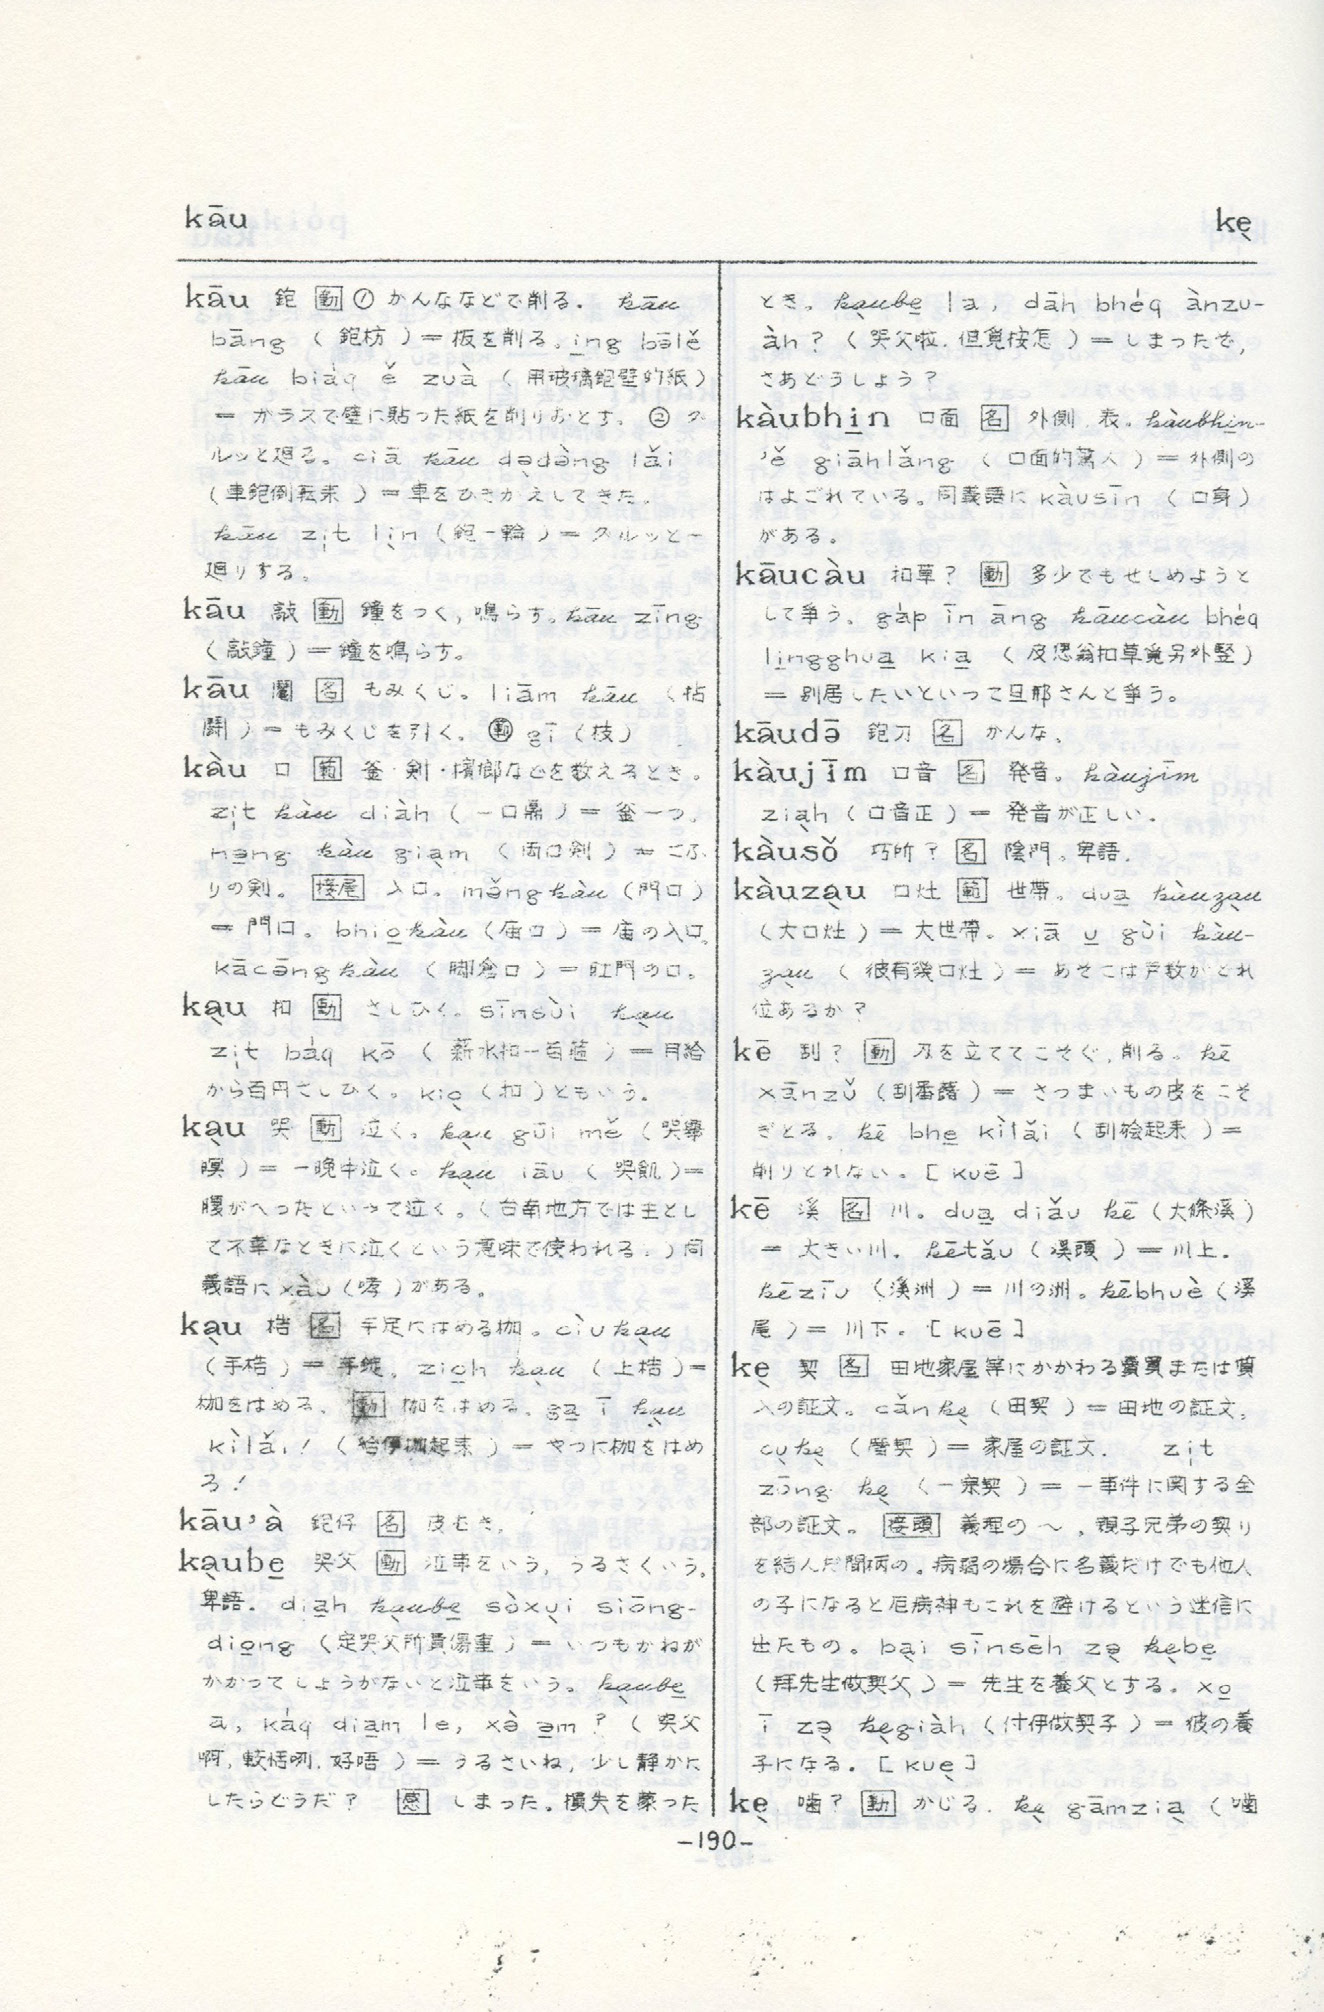 kāu
kẹ
kāu 鉋 動 ① かんななどで削る. kāu
bāng ( 鉋枋 ) = 板を削る. i̱ng bəlě
kāu biáq ě zuà ( 用玻璃鉋壁的紙 )
= ガラスで壁に貼った紙を削りおとす. ② グ
ルッと廻る. ciā kāu dədə̀ng lǎi
( 車鉋倒転来 ) = 車をひきかえしてきた.
kāu zi̍t li̱n ( 鉋一輪 ) = グルッと一
廻りする.
kāu 敲 動 鐘をつく, 鳴らす. kāu zīng
( 敲鐘 ) = 鐘を鳴らす.
kāu 鬮 名 もみくじ. liām kāu ( 拈
鬮 ) = もみくじを引く. 動 gī ( 枝 )
kàu 口 範 釜・剣・檳榔などを数えるとき.
zi̍t kàu diàh ( 一口鼎 ) = 釜一つ.
nə̱ng kàu giạm ( 両口剣 ) = 二ふ
りの剣. 接尾 入口. mə̌ngkàu ( 門口 )
= 門口. bhio̱kàu ( 庙口 ) = 庙の入口.
kācə̄ngkàu ( 脚倉口 ) = 肛門の口.
kạu 扣 動 さしひく. sīnsùi kạu
zi̍t báq kō ( 薪水扣一百箍 ) = 月給
から百円さしひく. kiọ ( 扣 ) ともいう.
kạu 哭 動 泣く. kạu gūi mě ( 哭舉
暝 ) = 一晩中泣く. kạu iāu ( 哭飢 ) =
腹がへったといって泣く. ( 台南地方では主とし
て不幸なときに泣くという意味で使われる. ) 同
義語に xàu ( 哮 ) がある.
kạu 梏 名 手足にはめる枷. cìukạu
( 手梏 ) = 手械. zio̱h kạu ( 上梏 ) =
枷をはめる. 動 枷をはめる. ga̱ ī kạu
kìlǎi! ( 給伊枷起来 ) = やつに枷をはめ
ろ!
kāu'à 鉋仔 名 皮むき.
kạube̱ 哭父 動 泣事をいう, うるさくいう.
卑語. dia̱h kạube̱ sòxụi siōng-
dio̱ng ( 定哭父所費傷重 ) = いつもかねが
かかってしょうがないと泣事をいう. kạube̱
a, káq diạm le, xə̀ ə̱m? ( 哭父
啊, 較恬咧, 好唔 ) = うるさいね, 少し静かに
したらどうだ? 感 しまった. 損失を蒙った
とき. kạube̱ la, dāh bhéq ànzu-
àh? ( 哭父啦, 但覓按怎 ) = しまったで,
さあどうしよう?
kàubhi̱n 口面 名 外側, 表. kàubhi̱n-
'ě giāhlǎng ( 口面的驚人 ) = 外側の
はよごれている. 同義語に kàusīn ( 口身 )
がある.
kāucàu 扣草? 動 多少でもせしめようと
して争う. gáp īn āng kāucàu bhéq
li̱ngghua̱ kia̱ ( 及𪜶翁扣草覓另外竪 )
= 別居したいといって旦那さんと争う.
kāudə̄ 鉋刀 名 かんな.
kàujīm 口音 名 発音. kàujīm
ziạh ( 口音正 ) = 発音が正しい.
kàusǒ 巧所? 名 陰門. 卑語.
kàuzạu 口灶 範 世帯. dua̱ kàuzạu
( 大口灶 ) = 大世帯. xiā u̱ gùi kàu-
zạu ( 彼有幾口灶 ) = あそこは戸数がどれ
位あるか?
kē 刮? 動 刃を立ててこそぐ, 削る. kē
xānzǔ ( 刮番藷 ) = さつまいもの皮をこそ
ぎとる. kē bhe̱ kìlǎi ( 刮𣍐起来 ) =
削りとれない. [ kuē ]
kē 溪 名 川. dua̱ diǎu kē ( 大條溪 )
= 大きい川. kētǎu ( 溪頭 ) = 川上.
kēzīu ( 溪洲 ) = 川の洲. kēbhuè ( 溪
尾 ) = 川下. [ kuē ]
kẹ 契 名 田地家屋等にかかわる賣買または質
入の証文. cǎnkẹ ( 田契 ) = 田地の証文.
cụkẹ ( 厝契 ) = 家屋の証文. zi̍t
zōng kẹ ( 一宗契 ) = 一事件に関する全
部の証文. 接頭 義理の〜, 親子兄弟の契り
を結んだ間柄の. 病弱の場合に名義だけでも他人
の子になると厄病神もこれを避けるという迷信に
出たもの. bại sīnsēh zə̣ kẹbe̱
( 拜先生做契父 ) = 先生を養父とする. xo̱
ī zə̣ kẹgiàh ( 付伊做契子 ) = 彼の養
子になる. [ kuẹ ]
kẹ 嚙? 動 かじる. kẹ gāmzia̱ ( 嚙
-190-